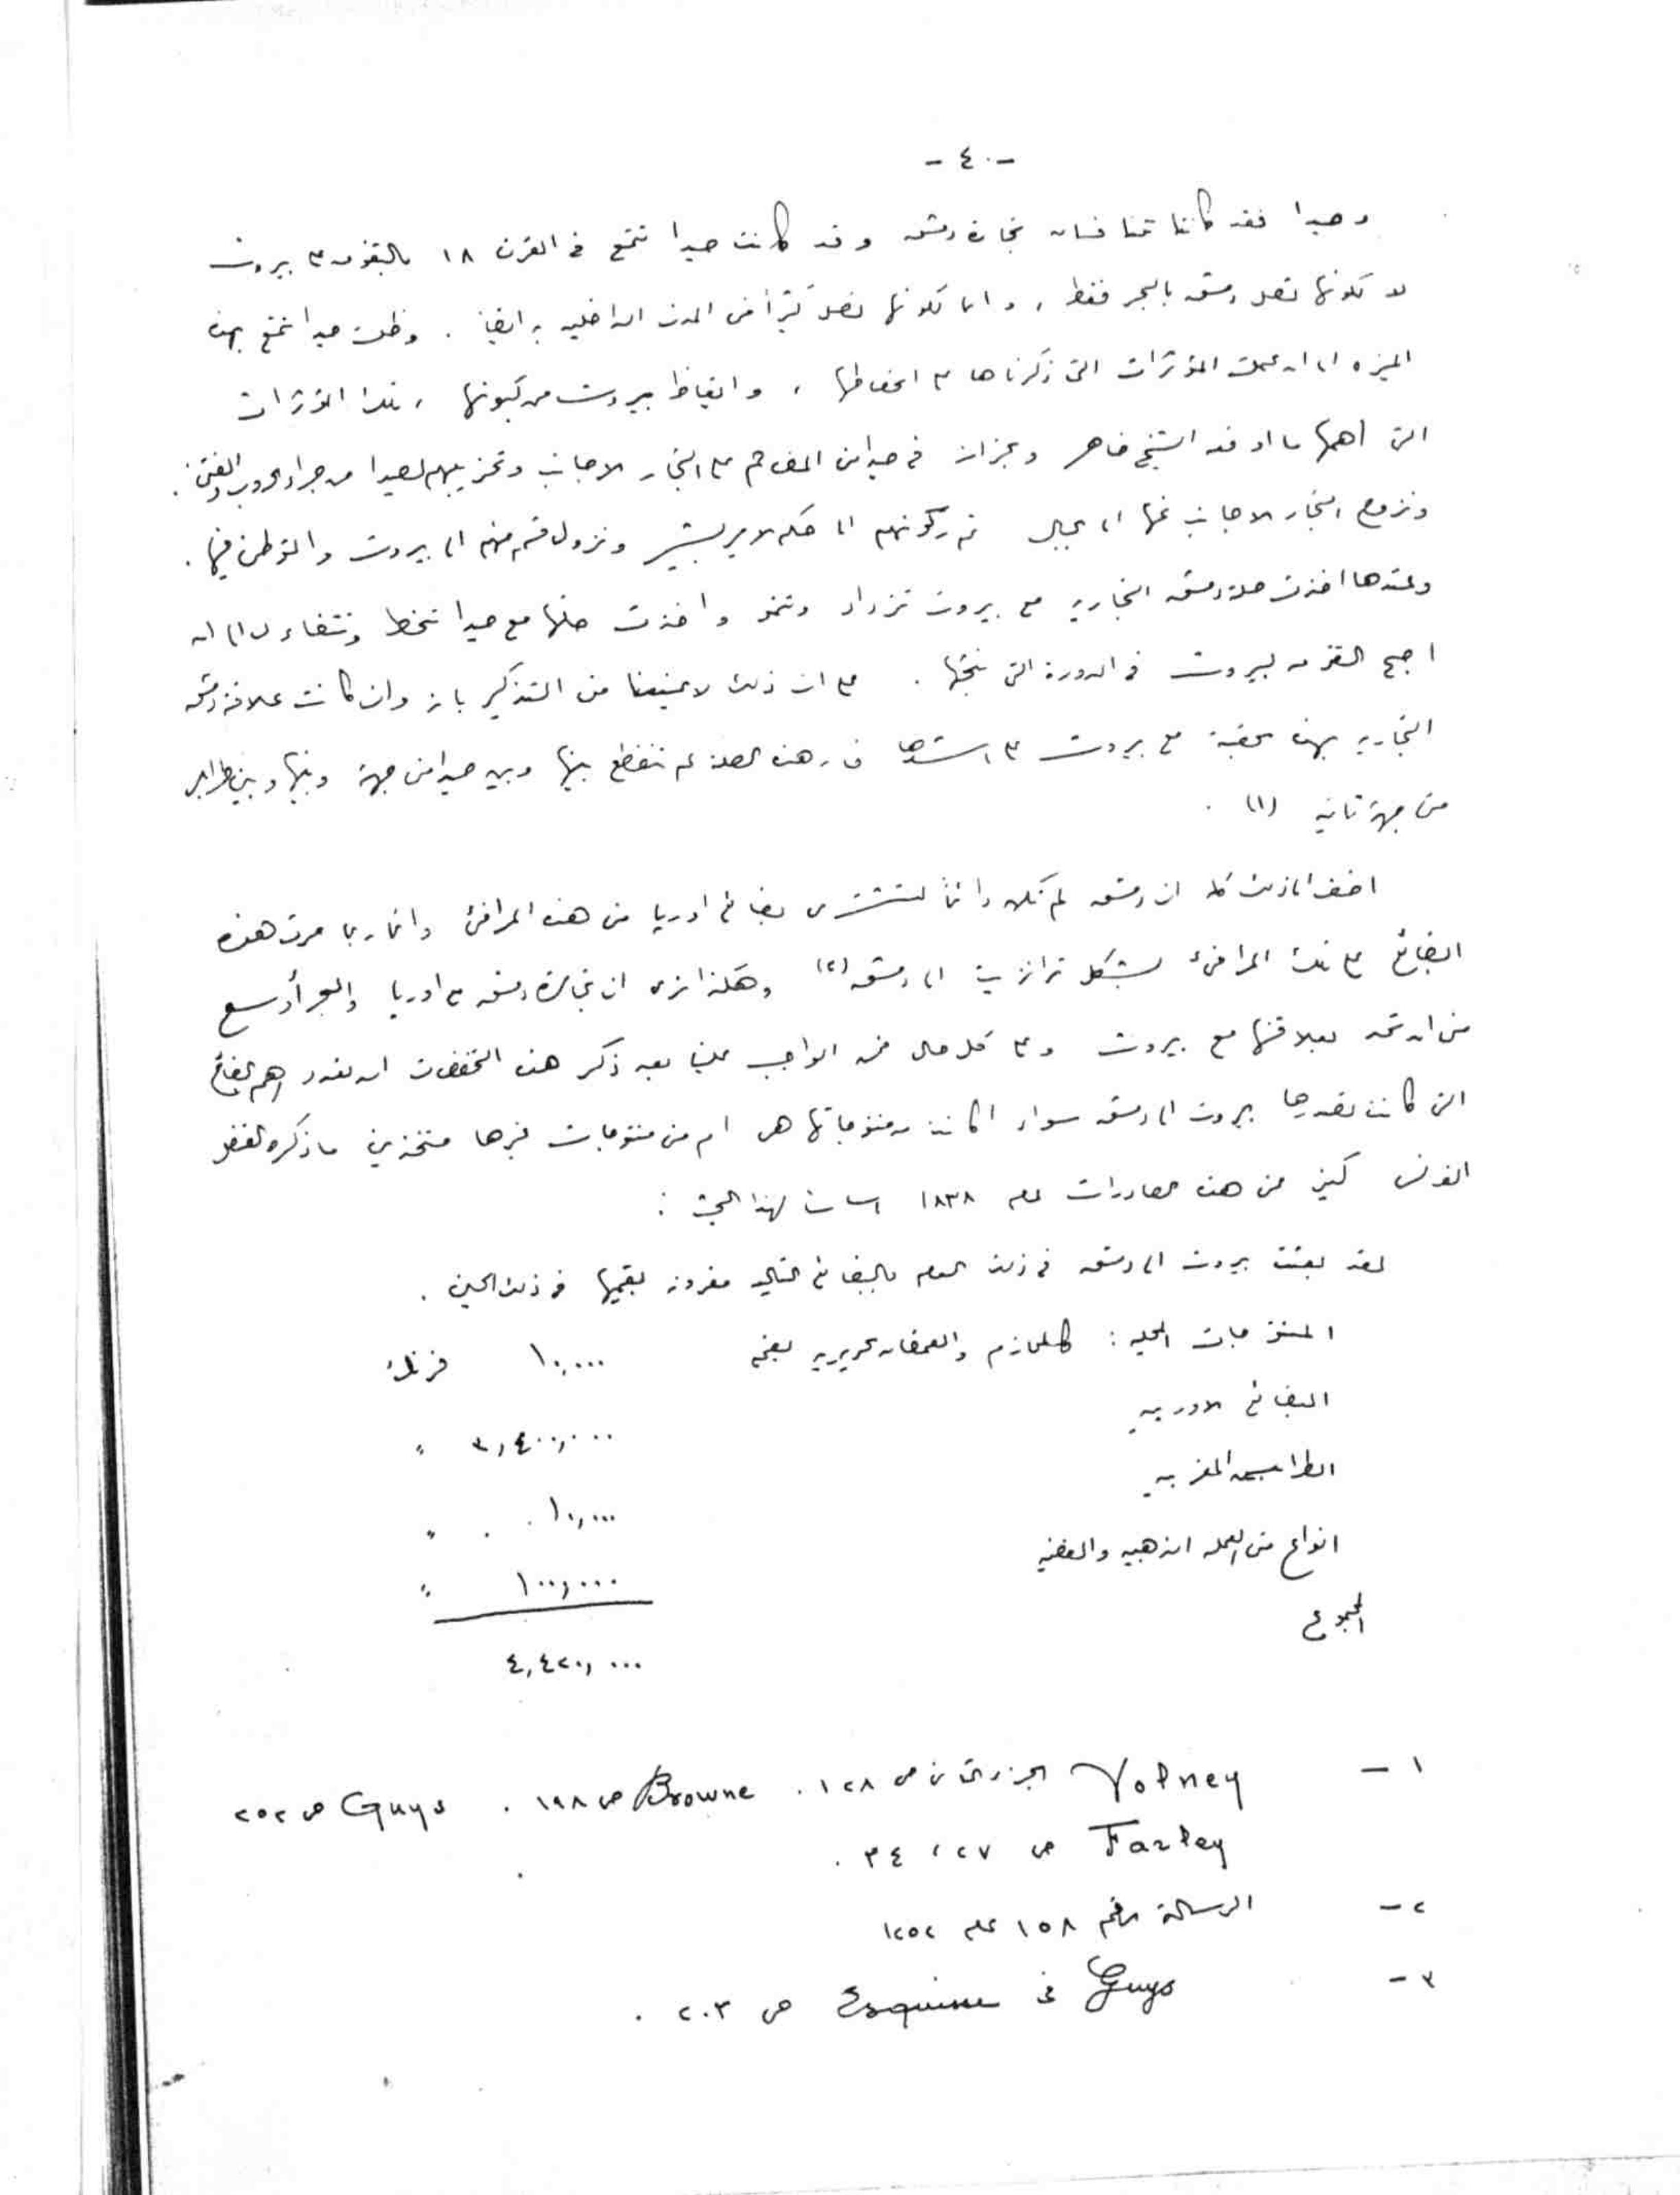 - ٤٠ -
وصيدا فقد كانتا تتنافسان تجارة دمشق وقد كانت صيدا تتمتع في القرن ١٨ بالتفوق على بيروت
لا لكونها تصل دمشق بالبحر فقط ، وانما لكونها تصل كثيرا من المدن الداخليه به ايضا . وظلت صيدا تتمتع بهذه
الميزه الى ان عملت المؤثرات التي ذكرناها على انحطاطها ، وايقاظ بيروت من كبوتها ، تلك المؤثرات
التي اهمها ما اوقعه الشيخ ضاهر والجزار في صيدا من المغارم على التجار الاجانب وتخريبهم لصيدا من جراء الحروب والفتن .
ونزوح التجار الاجانب عنها الى الجبال ثم ركونهم الى حكم الامير بشير ونزول قسم منهم الى بيروت والتوطن فيها .
وعندها اخذت صلة دمشق التجاريه مع بيروت تزداد وتنمو واخذت صلتها مع صيدا تنحط وتتضاءل الى ان
اصبح التفوق لبيروت في الدورة التي نبحثها . على ان ذلك لا يمنعنا من التذكير بانه وان كانت علاقة دمشق
التجاريه بهذه الحقبة مع بيروت على اشدها فان هذه الصلة لم تنقطع بينها وبين صيدا من جهة وبينها وبين طرابلس
من جهة ثانيه (١) .
اضف الى ذلك كله ان دمشق لم تكن دائماً لتشتري بضائع اوربا من هذه المرافئ وانما ربما مرت هذه
البضائع على تلك المرافئ بشكل ترانزيت الى دمشق (٢) وهكذا نرى ان تجارة دمشق مع اوربا والبحر أوسع
من ان تحد بعلاقتها مع بيروت وعلى كل حال فمن الواجب علينا بعد ذكر هذه التحفظات ان نعدد اهم البضائع
التي كانت تصدرها بيروت الى دمشق سواء اكانت من منتوجاتها هي ام من منتوجات غيرها متخذين ما ذكره القنصل
الفرنسي كيز عن هذه الصادرات عام ١٨٣٨ اساسا لهذا البحث :
لقد بعثت بيروت الى دمشق في ذلك العام بالبضائع التاليه مقرونه بقيمها في ذلك الحين .
المنتوجات المحليه : كالمحازم والقمصان الحريريه بقيمة ١٠,٠٠٠ فرنك
البضائع الاوربيه ٣,٤٠٠,٠٠٠ "
الطرابيش المغربيه ١٠,٠٠٠ "
انواع من العمله الذهبيه والفضيه ١٠٠,٠٠٠ "
المجموع ٤,٤٢٠,٠٠٠
١ - Volney الجزء الثاني ص ١٢٨ . Browne ص ١٩٨ . Guys ص ٢٥٢
Farley ص ٢٧ ، ٣٤ .
٢ - الرسالة رقم ١٥٨ عام ١٢٥٢
٣ - Guys في Esquisse ص ٢٠٣ .